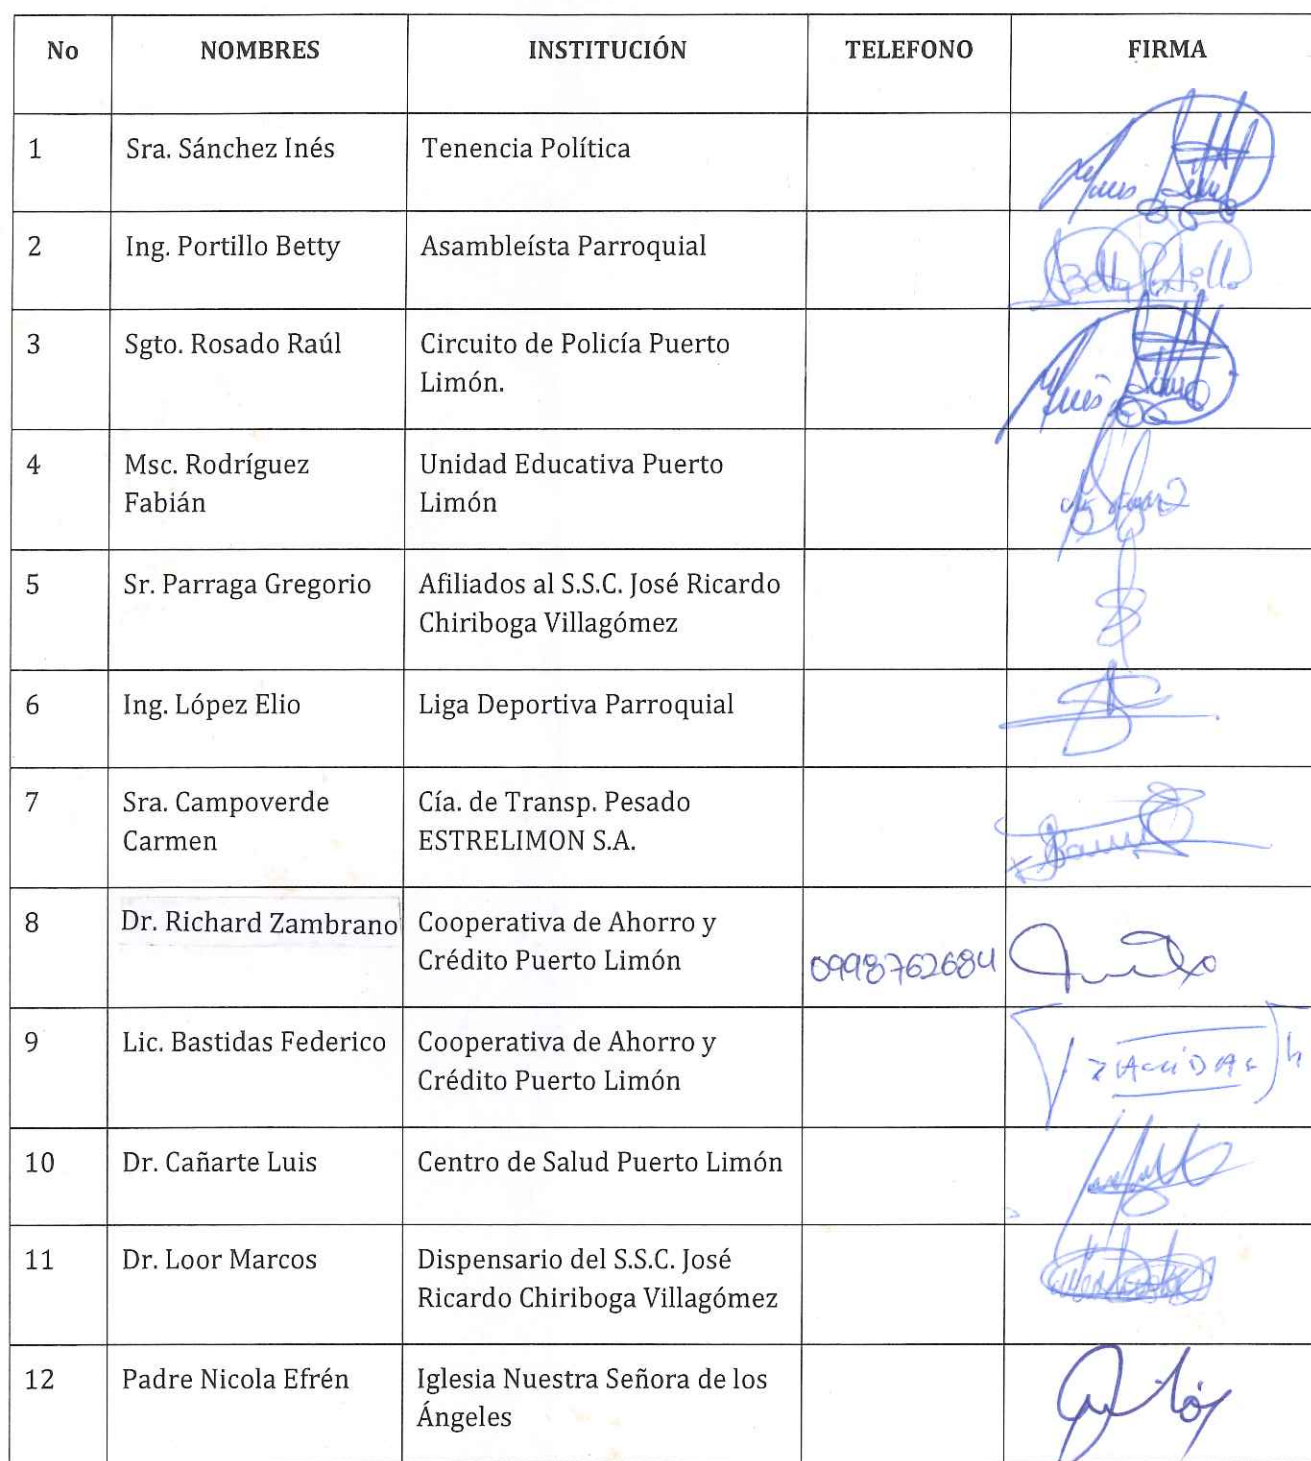 No NOMBRES INSTITUCIÓN TELEFONO FIRMA
1 Sra. Sánchez Inés Tenencia Política
2 Ing. Portillo Betty Asambleísta Parroquial Betty Portillo
3 Sgto. Rosado Raúl Circuito de Policía Puerto
Limón.
4 Msc. Rodríguez Unidad Educativa Puerto
Fabián Limón
5 Sr. Parraga Gregorio Afiliados al S.S.C. José Ricardo
Chiriboga Villagómez
6 Ing. López Elio Liga Deportiva Parroquial
7 Sra. Campoverde Cía. de Transp. Pesado
Carmen ESTRELIMON S.A.
8 Dr. Richard Zambrano Cooperativa de Ahorro y
Crédito Puerto Limón 0998762684
9 Lic. Bastidas Federico Cooperativa de Ahorro y
Crédito Puerto Limón
10 Dr. Cañarte Luis Centro de Salud Puerto Limón
11 Dr. Loor Marcos Dispensario del S.S.C. José
Ricardo Chiriboga Villagómez
12 Padre Nicola Efrén Iglesia Nuestra Señora de los
Ángeles